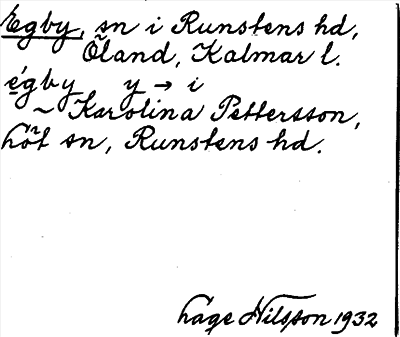 Egby, sn i Runstens hd,
Öland, Kalmar l.
égby y → i
~ Karolina Pettersson,
Löt sn, Runstens hd.
Lage Nilsson 1932